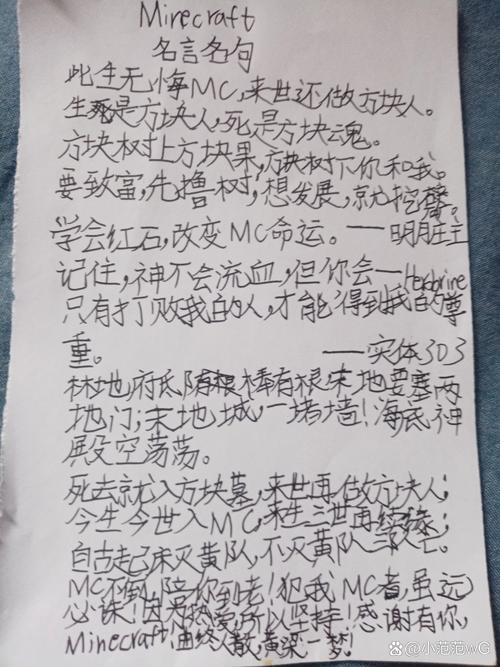 Minecraft
名言名句
此生无悔MC,来世还做方块人。
生死是方块人,死是方块魂。
方块树上方块果,方块树下你和我。
要致富,先撸树,想发展,就挖
学会红石,改变MC命运。——明月庄主
记住,神不会流血,但你会—Herobrine
只有打败我的人,才能得到我的尊
重。
——实体303
林地府氐 棒有根 末地要塞两
地门;末地城,一堵墙!海底神
殿空荡荡。
死去就入方块墓,来世再做方块人;
今生今世入MC,来生三世再续缘;
自古起床灭黄队,不灭黄队
MC不倒,陪你到老!犯我MC者,虽远
必诛!因为热爱,所以坚持!感谢有你,
Minecraft!曲终人散,黄梁一梦!
Bai百度 @小范范wG